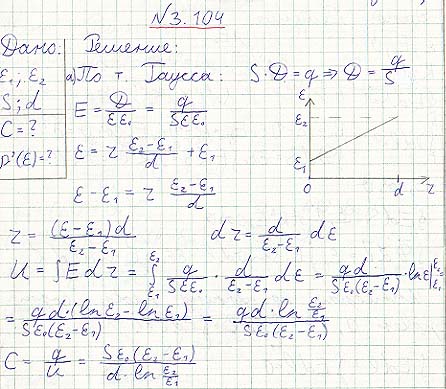 №3.104
Дано: Решение:
ε₁; ε₂ а) По т. Гаусса: S·D = q ⇒ D = q/S
S; d E = D/(εε₀) = q/(Sεε₀)
C = ?
ρ'(ε) = ? ε = r (ε₂-ε₁)/d + ε₁
ε
ε₂
ε₁
0 d r
ε-ε₁ = r (ε₂-ε₁)/d
r = (ε-ε₁)d/(ε₂-ε₁) dr = d/(ε₂-ε₁) dε
U = ∫E dr = ∫_{ε₁}^{ε₂} q/(Sεε₀) · d/(ε₂-ε₁) dε = qd/(Sε₀(ε₂-ε₁)) · ln ε|_{ε₁}^{ε₂} =
= qd·(ln ε₂ - ln ε₁)/(Sε₀(ε₂-ε₁)) = qd·ln (ε₂/ε₁)/(Sε₀(ε₂-ε₁))
C = q/U = Sε₀(ε₂-ε₁)/(d·ln (ε₂/ε₁))